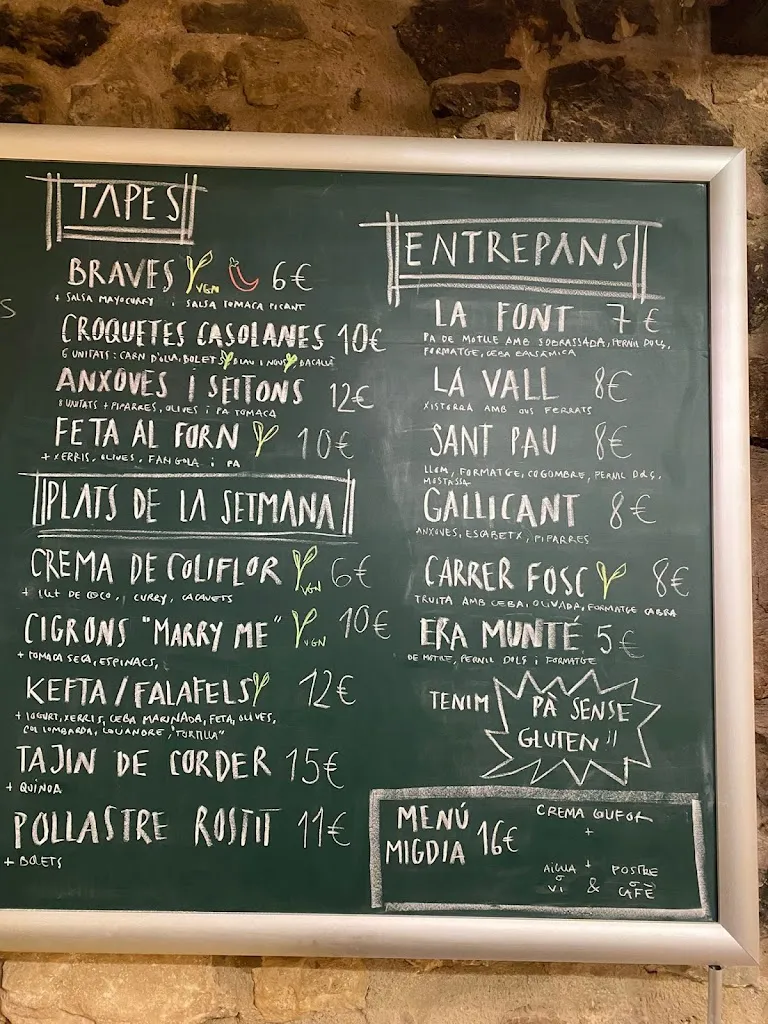 TAPES
BRAVES VGN 6€
+ SALSA MAYOCURRY i SALSA TOMACA PICANT
CROQUETES CASOLANES 10€
6 UNITATS: CARN D'OLLA, BOLETS, BLAU I NOUS, BACALLÀ
ANXOVES I SEITONS 12€
8 UNITATS + PIPARRES, OLIVES i PA TOMACA
FETA AL FORN 10€
+ XERRIS, OLIVES, FARIGOLA i PA
PLATS DE LA SETMANA
CREMA DE COLIFLOR VGN 6€
+ LLET DE COCO, CURRY, CACAUETS
CIGRONS "MARRY ME" VGN 10€
+ TOMACA SECA, ESPINACS,
KEFTA/FALAFELS 12€
+ IOGURT, XERRIS, CEBA MARINADA, FETA, OLIVES,
COL LOMBARDA, COUANDRE, "TORTILLA"
TAJIN DE CORDER 15€
+ QUINOA
POLLASTRE ROSTIT 11€
+ BOLETS
ENTREPANS
LA FONT 7€
PA DE MOTLLE AMB SOBRASSADA, PERNIL DOLÇ,
FORMATGE, CEBA BALSÀMICA
LA VALL 8€
XISTORRA AMB OUS FERRATS
SANT PAU 8€
LLOM, FORMATGE, COGOMBRE, PERNIL DOLÇ,
MOSTASSA
GALLICANT 8€
ANXOVES, ESCABETX, PIPARRES
CARRER FOSC 8€
TRUITA AMB CEBA, OLIVADA, FORMATGE CABRA
ERA MUNTÉ 5€
DE MOTLLE, PERNIL DOLS i FORMATGE
TENIM PÀ SENSE
GLUTEN!!
MENÚ
MIGDIA 16€
CREMA COLIFOR
+
+
AIGUA
O
VI
&
POSTRE
O
CAFÈ